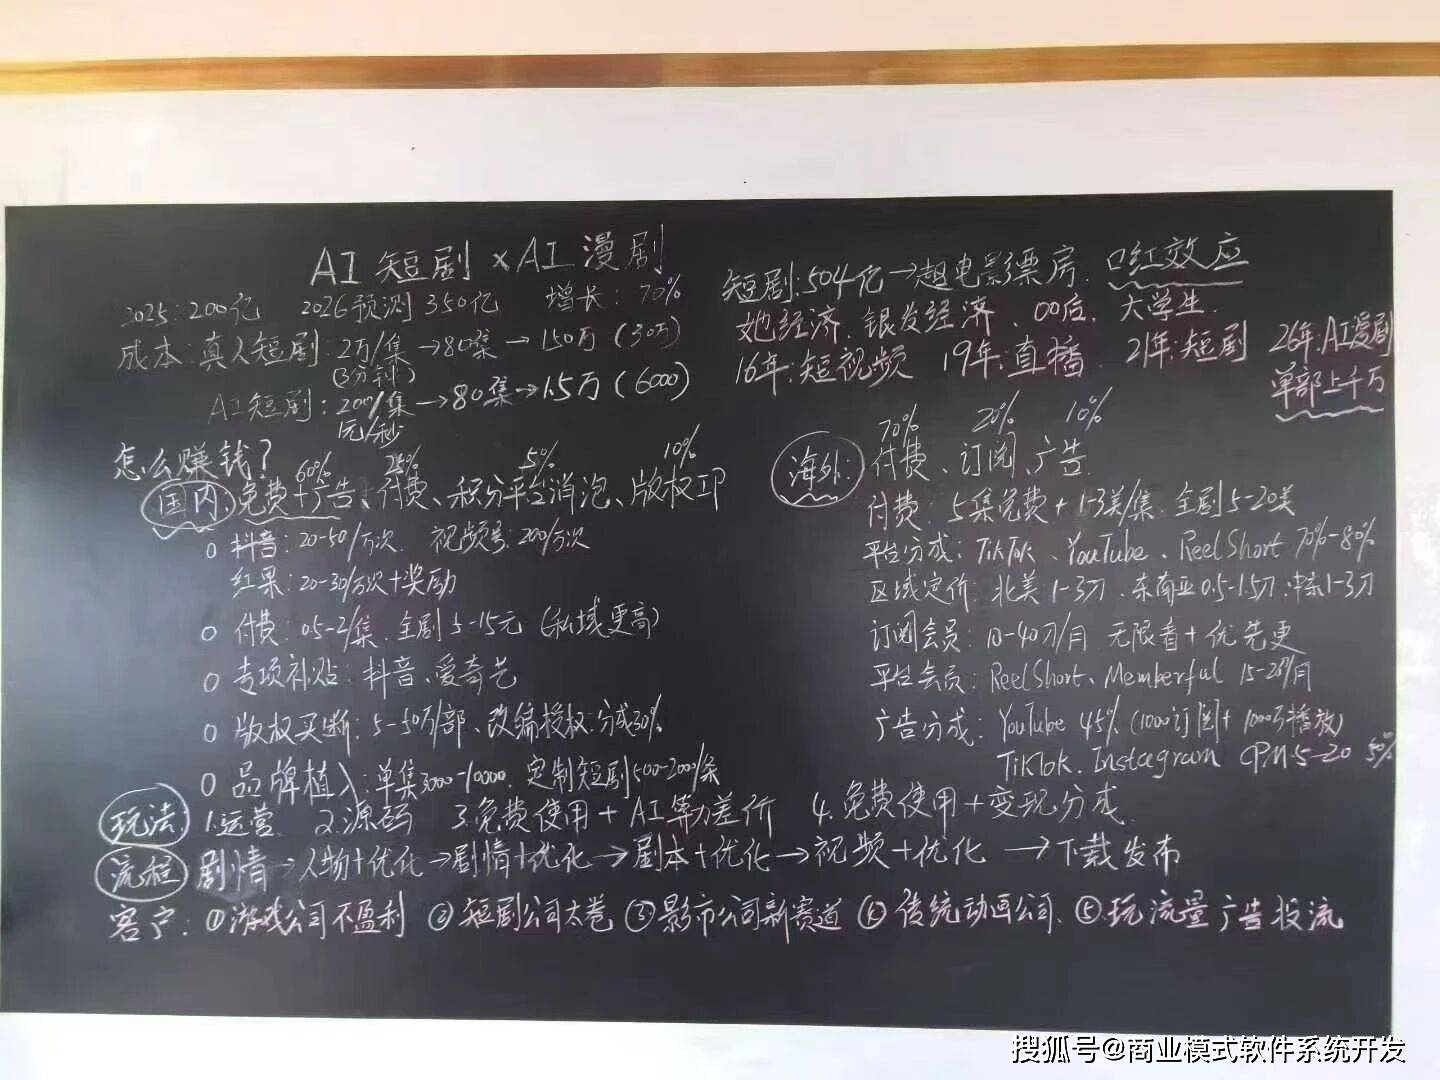 AI 短剧 × AI 漫剧
2025：200亿 2026预测 350亿 增长：70%
成本：真人短剧 2万/集 →80集→150万（30万）
(3分钟)
AI短剧：200/集 →80集→1.5万（6000）
元/秒
怎么赚钱？
60% 25% 5% 10%
国内：免费+广告、付费、积分平台消泡、版权IP
抖音：20-50/万次 视频号：200/万次
红果：20-30/万次+奖励
付费：0.5-2/集 全剧 5-15元（私域更高）
专项补贴：抖音、爱奇艺
版权买断：5-50万/部、改编授权：分成30%
品牌植入：单集3000-10000、定制短剧500-2000/条
短剧：504亿→超电影票房 口红效应
她经济、银发经济、00后、大学生
16年：短视频 19年：直播 21年：短剧 26年：AI漫剧
单部上千万
70% 20% 10%
海外：付费、订阅、广告
付费：5集免费+1-3美/集 全剧5-20美
平台分成：TikTok、YouTube、ReelShort 70%-80%
区域定价：北美1-3刀、东南亚0.5-1.5刀、中东1-3刀
订阅会员：10-40刀/月 无限看+优先更
平台会员：ReelShort、Memberful 15-28/月
广告分成：YouTube 45%（1000订阅+1000万播放）
TikTok、Instagram CPM:5-20 50%
玩法 1.运营 2.源码 3.免费使用+AI算力差价 4.免费使用+变现分成
流程 剧情→人物+优化→剧情+优化→剧本+优化→视频+优化→下载发布
客户：①游戏公司不盈利 ②短剧公司太卷 ③影市公司新赛道 ④传统动画公司 ⑤玩流量广告投流
搜狐号@商业模式软件系统开发